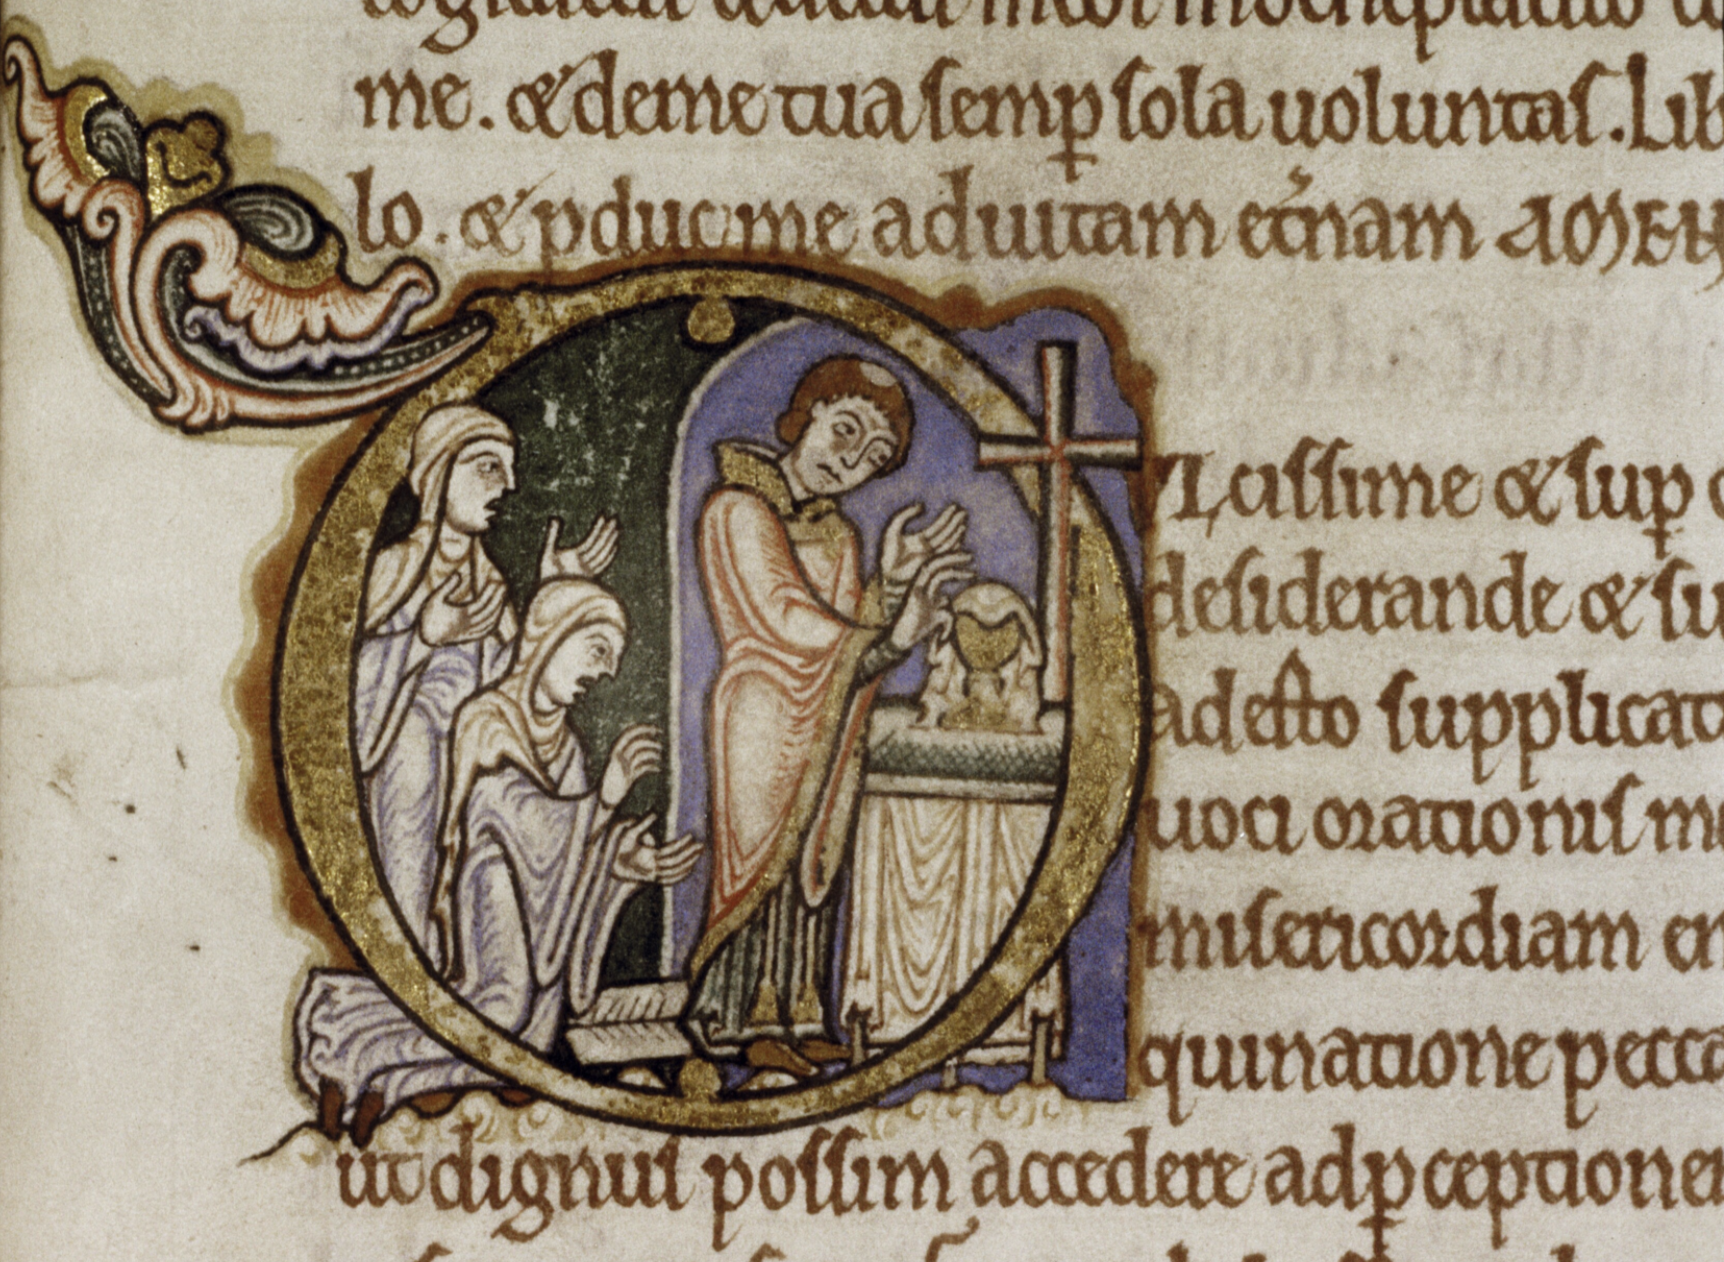 me. & deme tua semp sola uoluntas. Lib
lo. & pduc me aduitam et̃nam AMEN
D
ulcissime & sup
desiderande & su
adesto supplicat
uoci orationis m
misericordiam
quinatione pecca
ut dignus possim accedere adpceptione